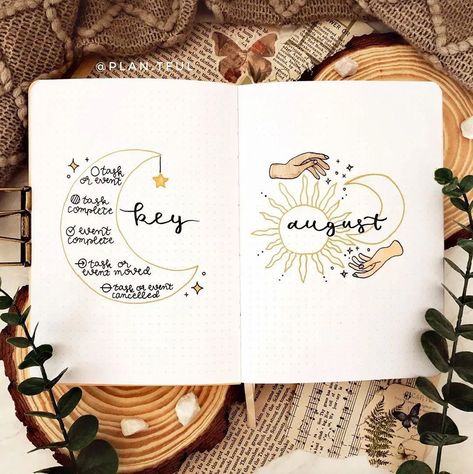 @PLAN.TFUL
task
or event
task
complete
key
event
complete
task or
event moved
task or event
cancelled
august